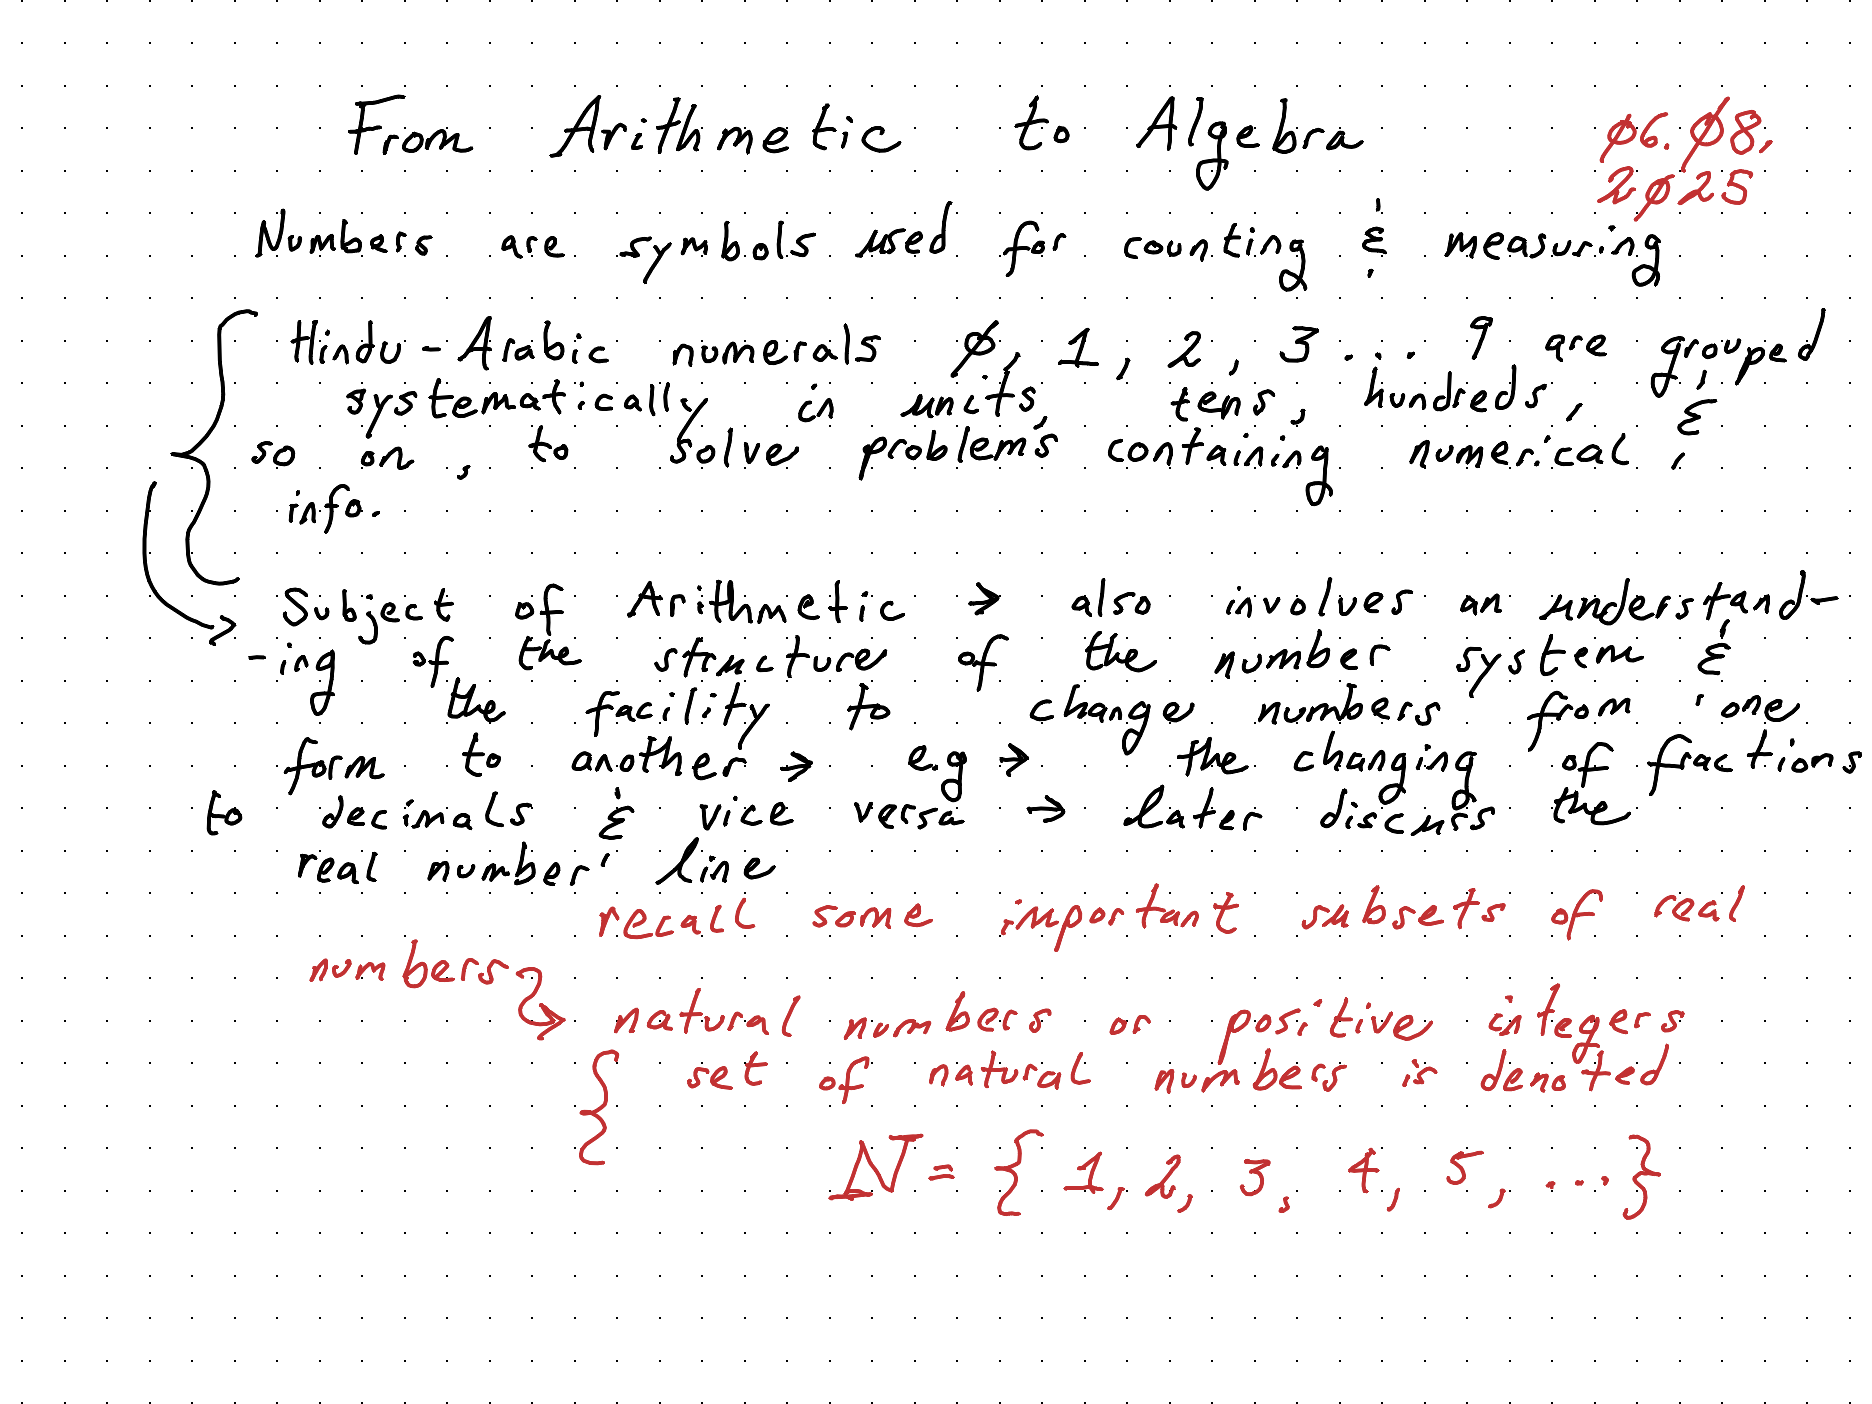 From Arithmetic to Algebra
Ø6.Ø8,
2Ø25
Numbers are symbols used for counting & measuring
Hindu-Arabic numerals Ø, 1, 2, 3 ... 9 are grouped
systematically in units, tens, hundreds, &
so on, to solve problems containing numerical
info.
Subject of Arithmetic → also involves an understand-
-ing of the structure of the number system &
the facility to change numbers from one
form to another → e.g → the changing of fractions
to decimals & vice versa → later discuss the
real number line
recall some important subsets of real
numbers
natural numbers or positive integers
set of natural numbers is denoted
N = { 1, 2, 3, 4, 5, ... }